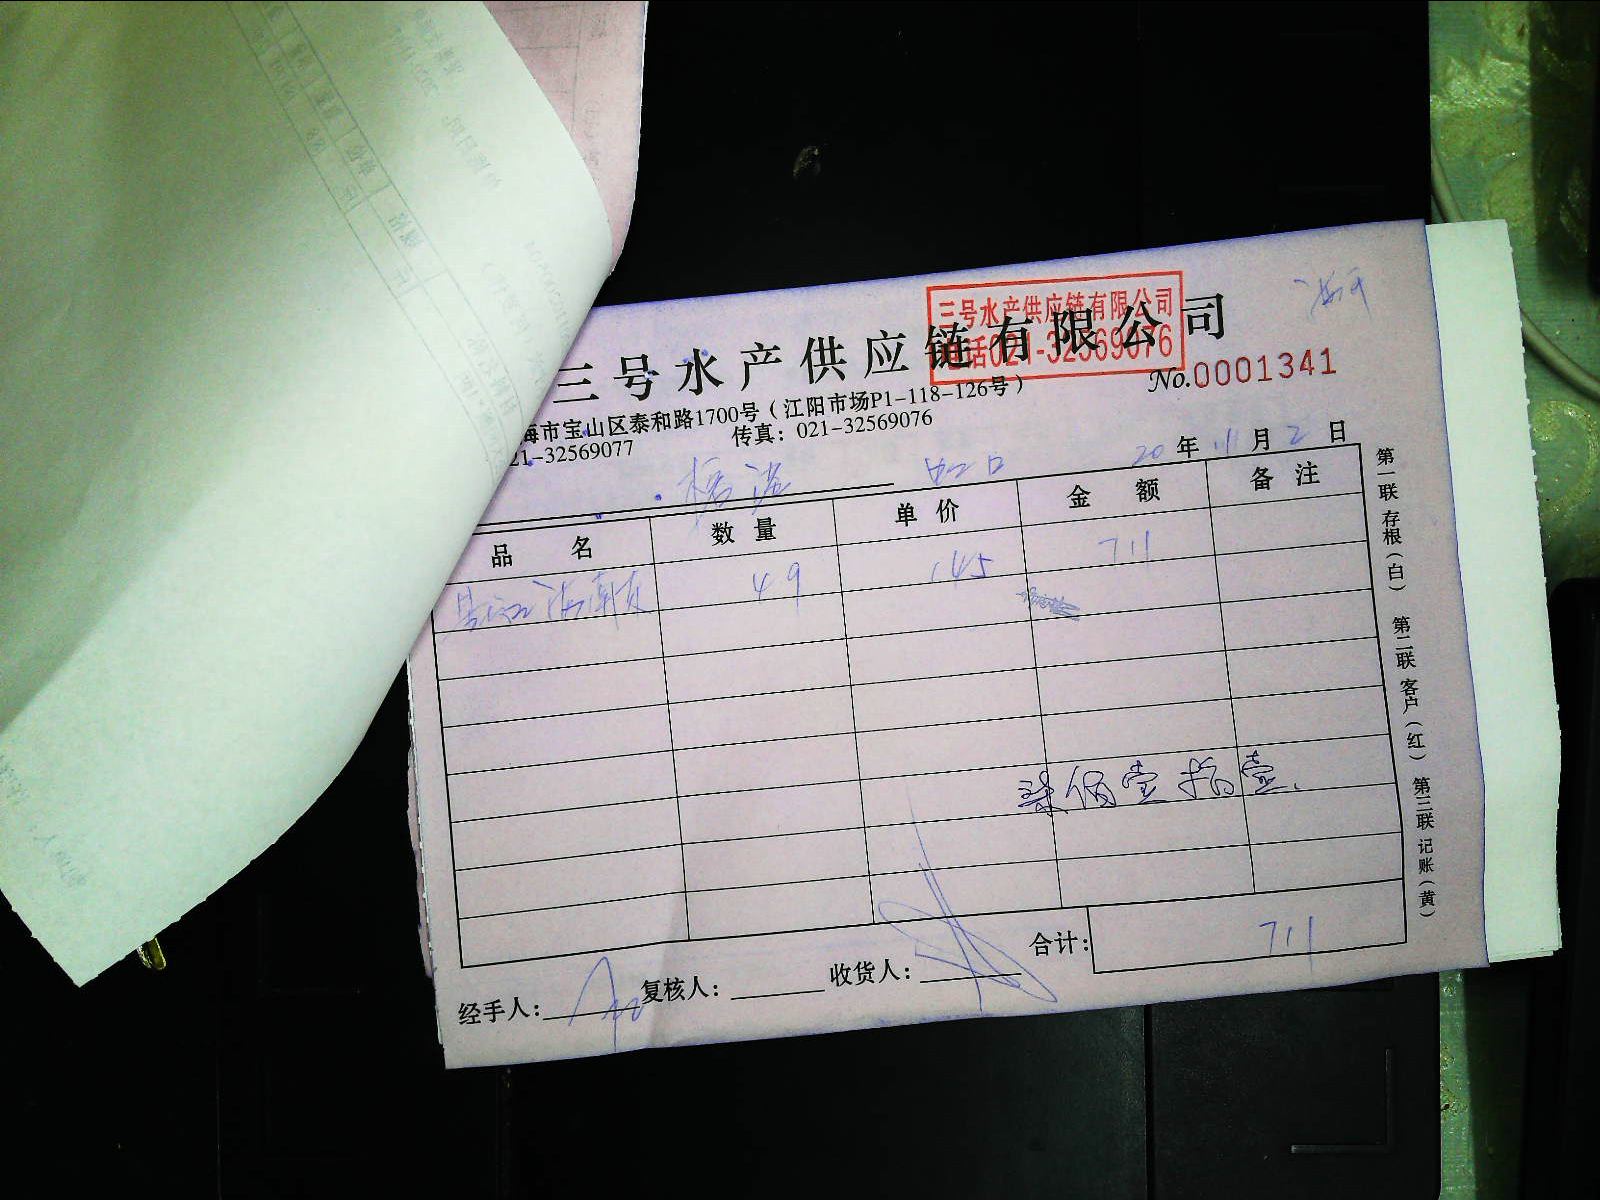 三号水产供应链有限公司
三号水产供应链有限公司
电话021-32569076
No.0001341
海市宝山区泰和路1700号（江阳市场P1-118-126号）
21-32569077 传真：021-32569076
虹口
20年11月2日
品名 数量 单价 金额 备注
海南 4.9 145 711
柒佰壹拾壹
合计： 711
经手人： 复核人： 收货人：
第一联存根（白） 第二联客户（红） 第三联记账（黄）